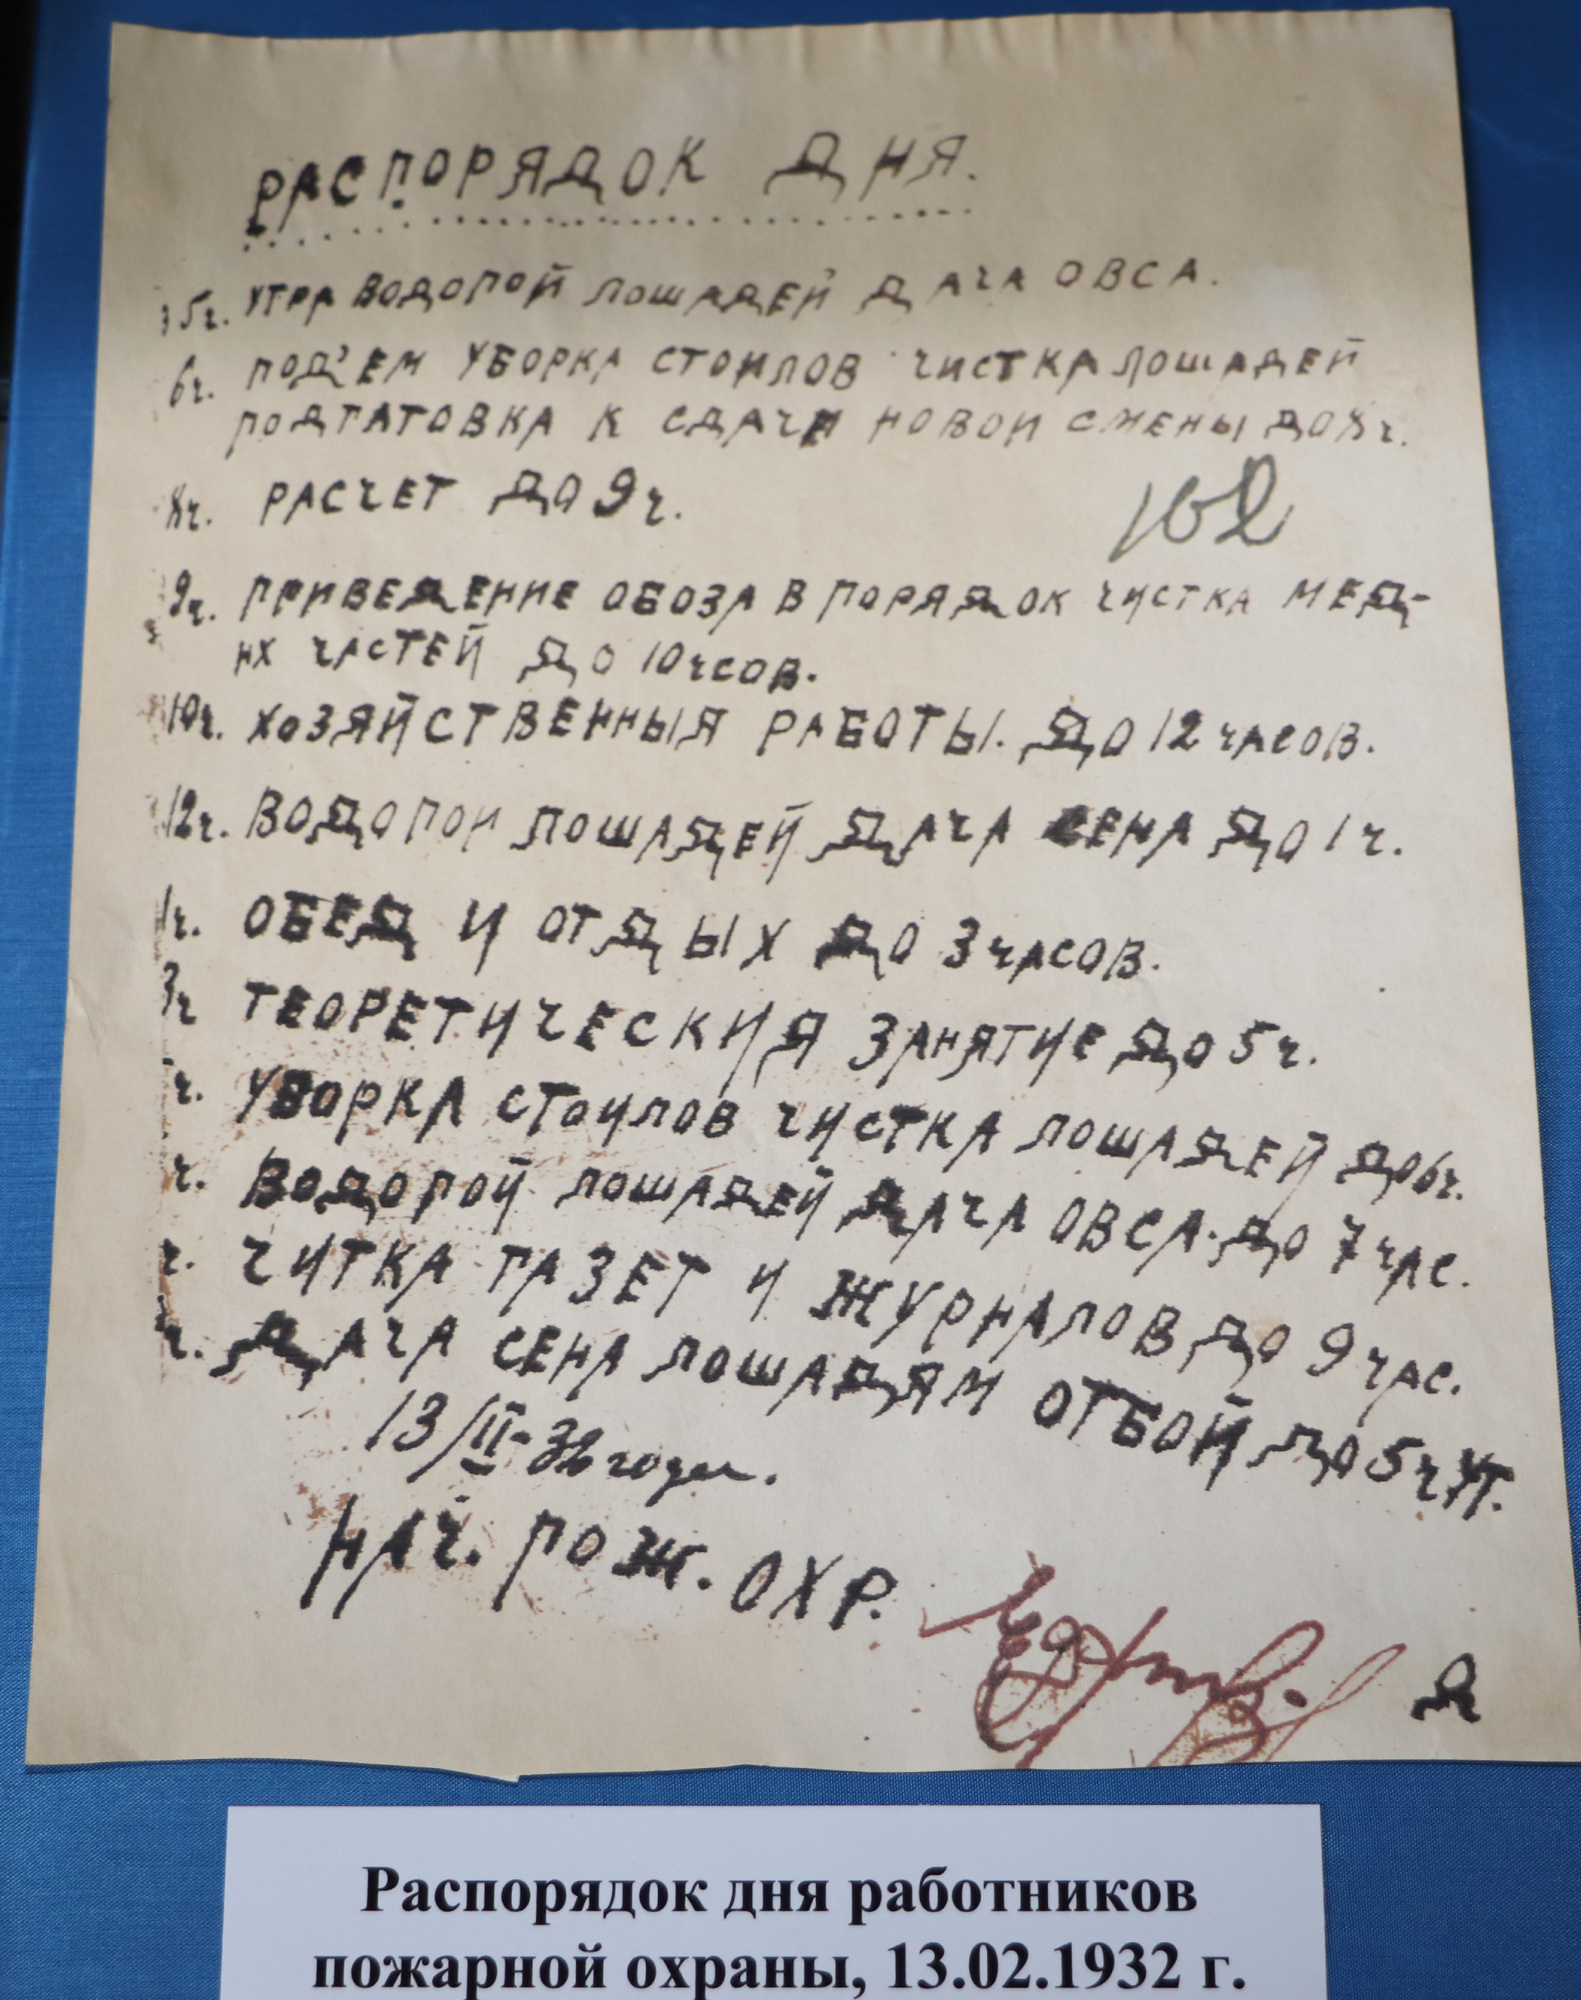 РАСПОРЯДОК ДНЯ.
5ч. УТРА ВОДОПОЙ ЛОШАДЕЙ ДАЧА ОВСА.
6ч. ПОД'ЕМ УБОРКА СТОИЛОВ ЧИСТКА ЛОШАДЕЙ
ПОДГАТОВКА К СДАЧИ НОВОЙ СМЕНЫ ДО 8ч.
8ч. РАСЧЕТ ДО 9ч.
162
9ч. ПРИВЕДЕНИЕ ОБОЗА В ПОРЯДОК ЧИСТКА МЕД-
НХ ЧАСТЕЙ ДО 10 ЧСОВ.
10ч. ХОЗЯЙСТВЕННЫЯ РАБОТЫ. ДО 12 ЧАСОВ.
12ч. ВОДОПОИ ЛОШАДЕЙ ДАЧА СЕНА ДО 1ч.
1ч. ОБЕД И ОТДЫХ ДО 3 ЧАСОВ.
3ч ТЕОРЕТИЧЕСКИЯ ЗАНЯТИЕ ДО 5ч.
ч. УБОРКА СТОИЛОВ ЧИСТКА ЛОШАДЕЙ ДО 6ч.
ч. ВОДОПОЙ ЛОШАДЕЙ ДАЧА ОВСА. ДО 7 ЧАС.
ч. ЧИТКА ГАЗЕТ И ЖУРНАЛОВ ДО 9 ЧАС.
ч. ДАЧА СЕНА ЛОШАДЯМ ОТБОЙ ДО 5ч УТ.
13/II-32 года.
НАЧ. ПОЖ. ОХР.
Распорядок дня работников
пожарной охраны, 13.02.1932 г.